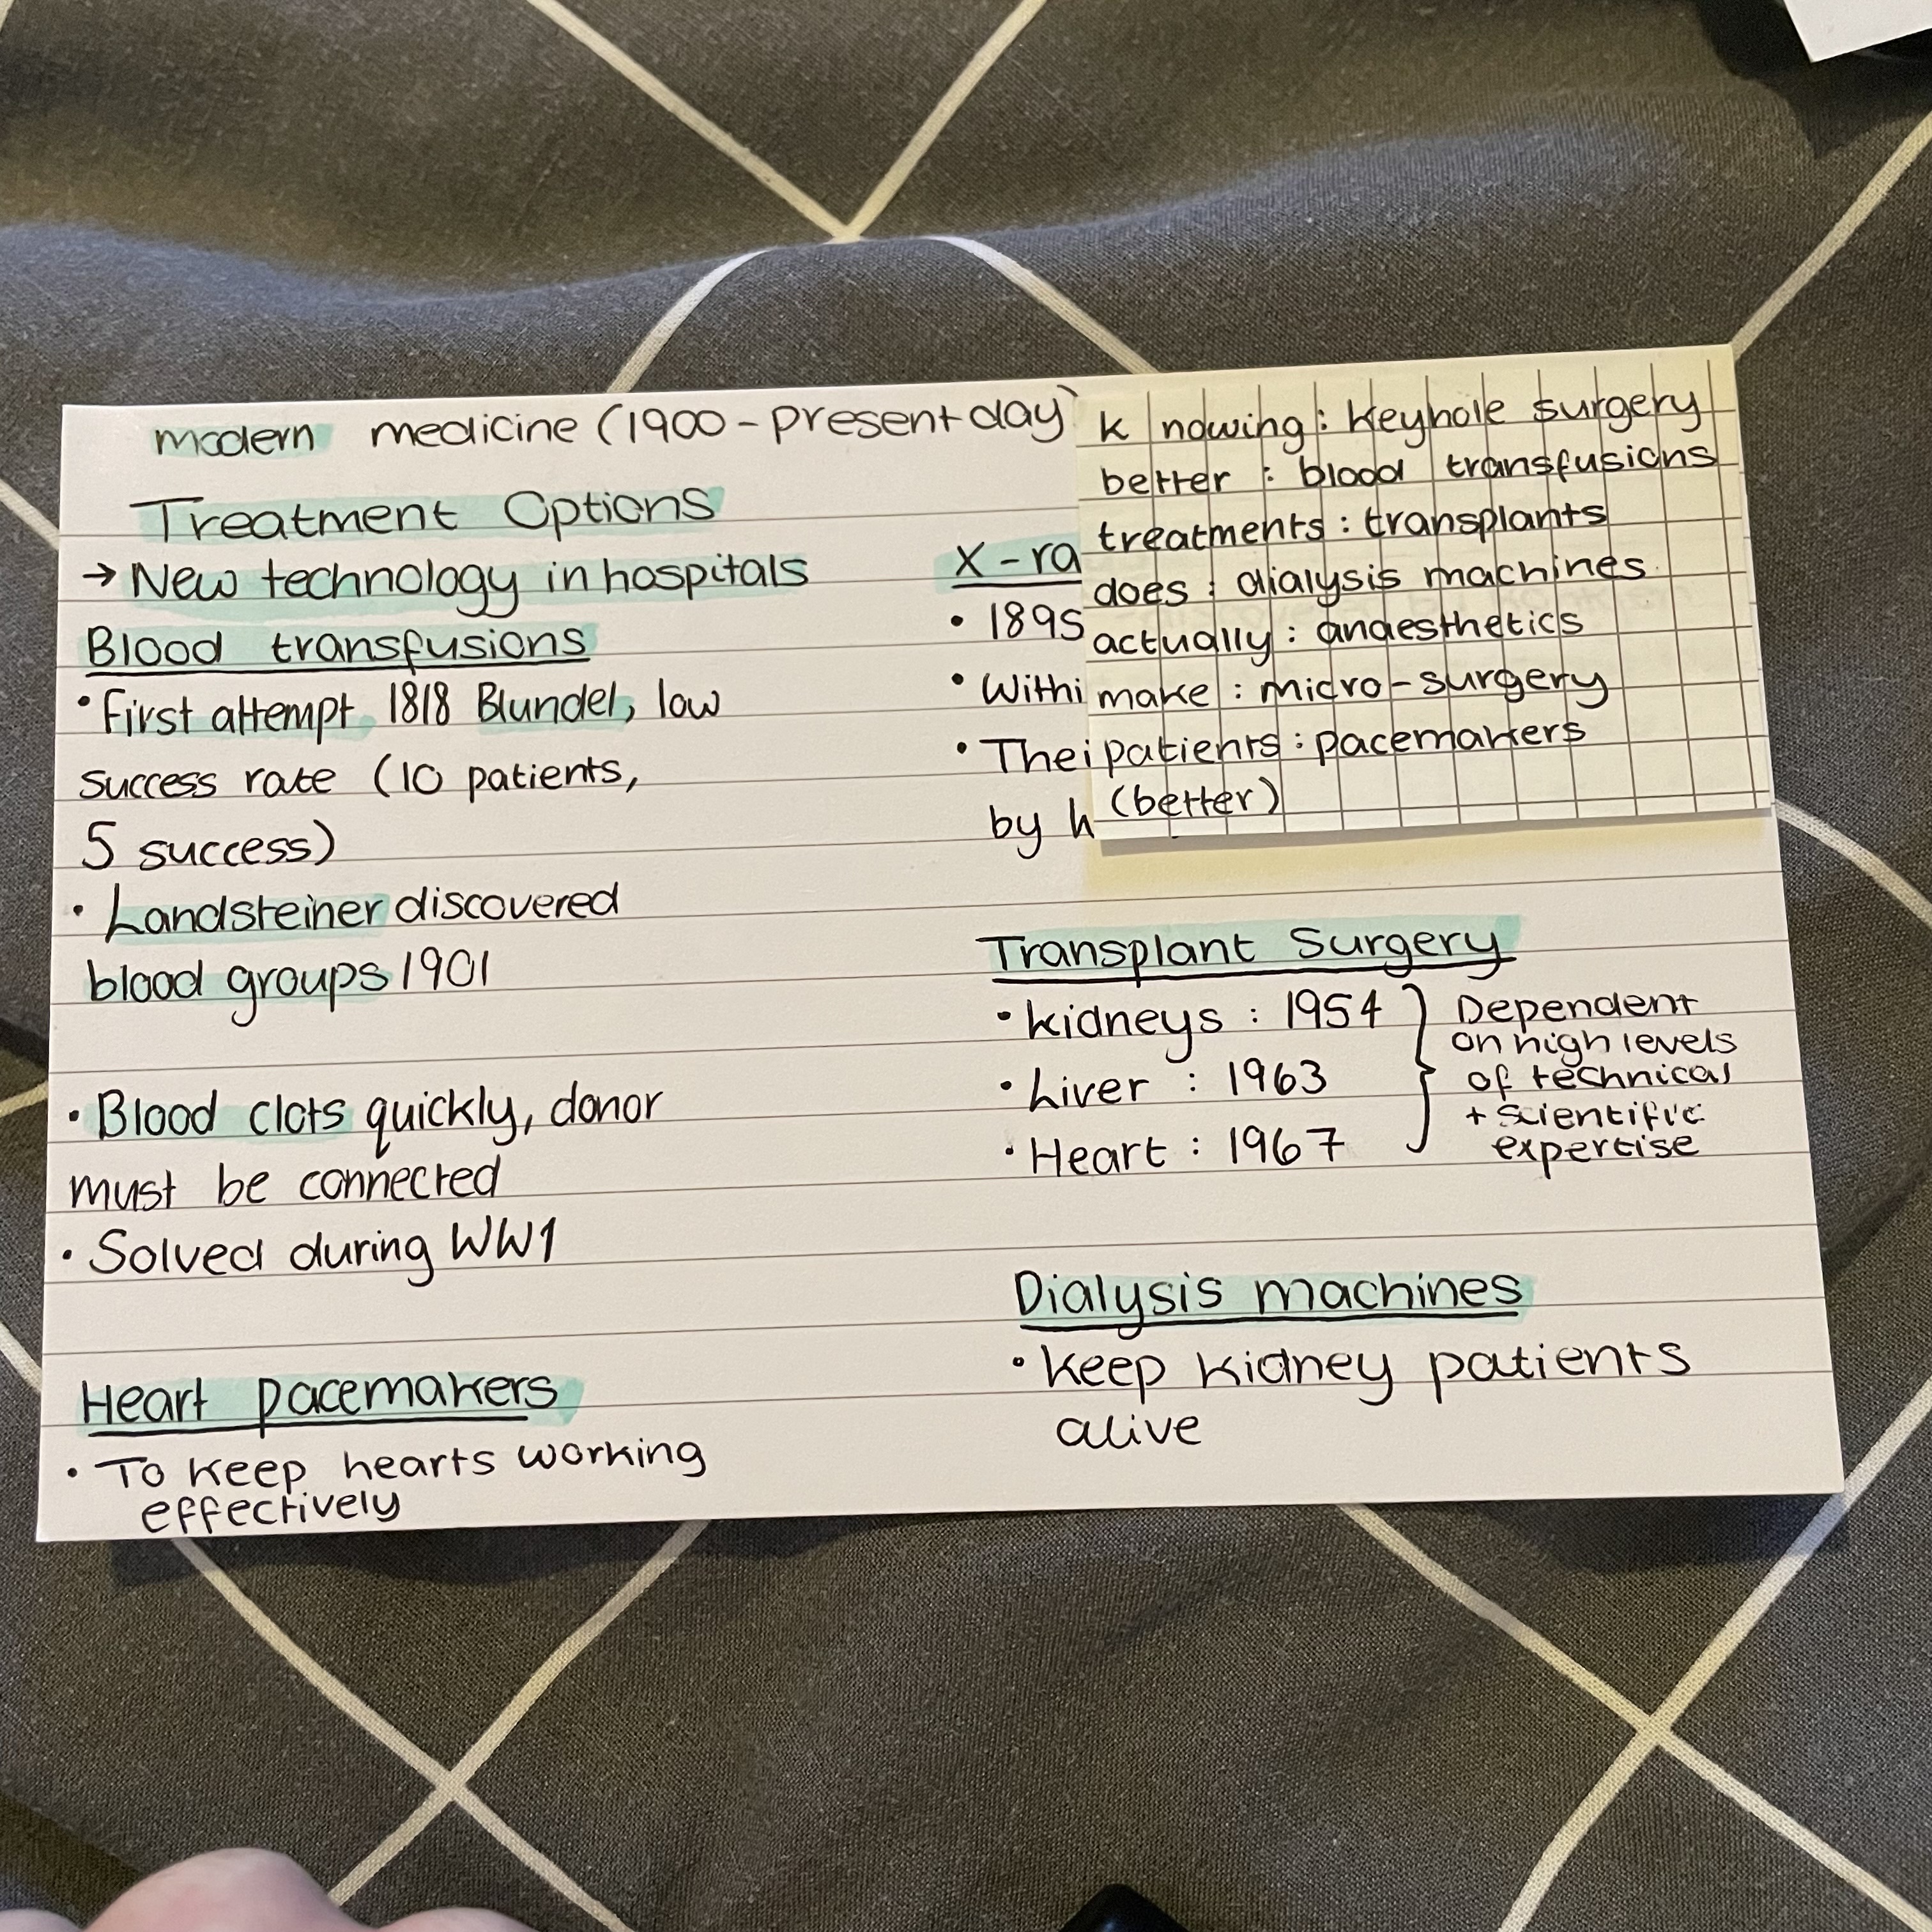 modern medicine (1900 - present day)
Treatment Options
→ New technology in hospitals
Blood transfusions
• First attempt 1818 Blundel, low
success rate (10 patients,
5 success)
• Landsteiner discovered
blood groups 1901
• Blood clots quickly, donor
must be connected
• Solved during WW1
Heart pacemakers
• To keep hearts working
effectively
k nowing : keyhole surgery
better : blood transfusions
treatments : transplants
does : dialysis machines
actually : anaesthetics
make : micro-surgery
patients : pacemakers
(better)
X-ra
• 1895
• Withi
• Thei
by h
Transplant Surgery
• kidneys : 1954
• Liver : 1963
• Heart : 1967
Dependent
on high levels
of technical
+ scientific
expertise
Dialysis machines
• keep kidney patients
alive